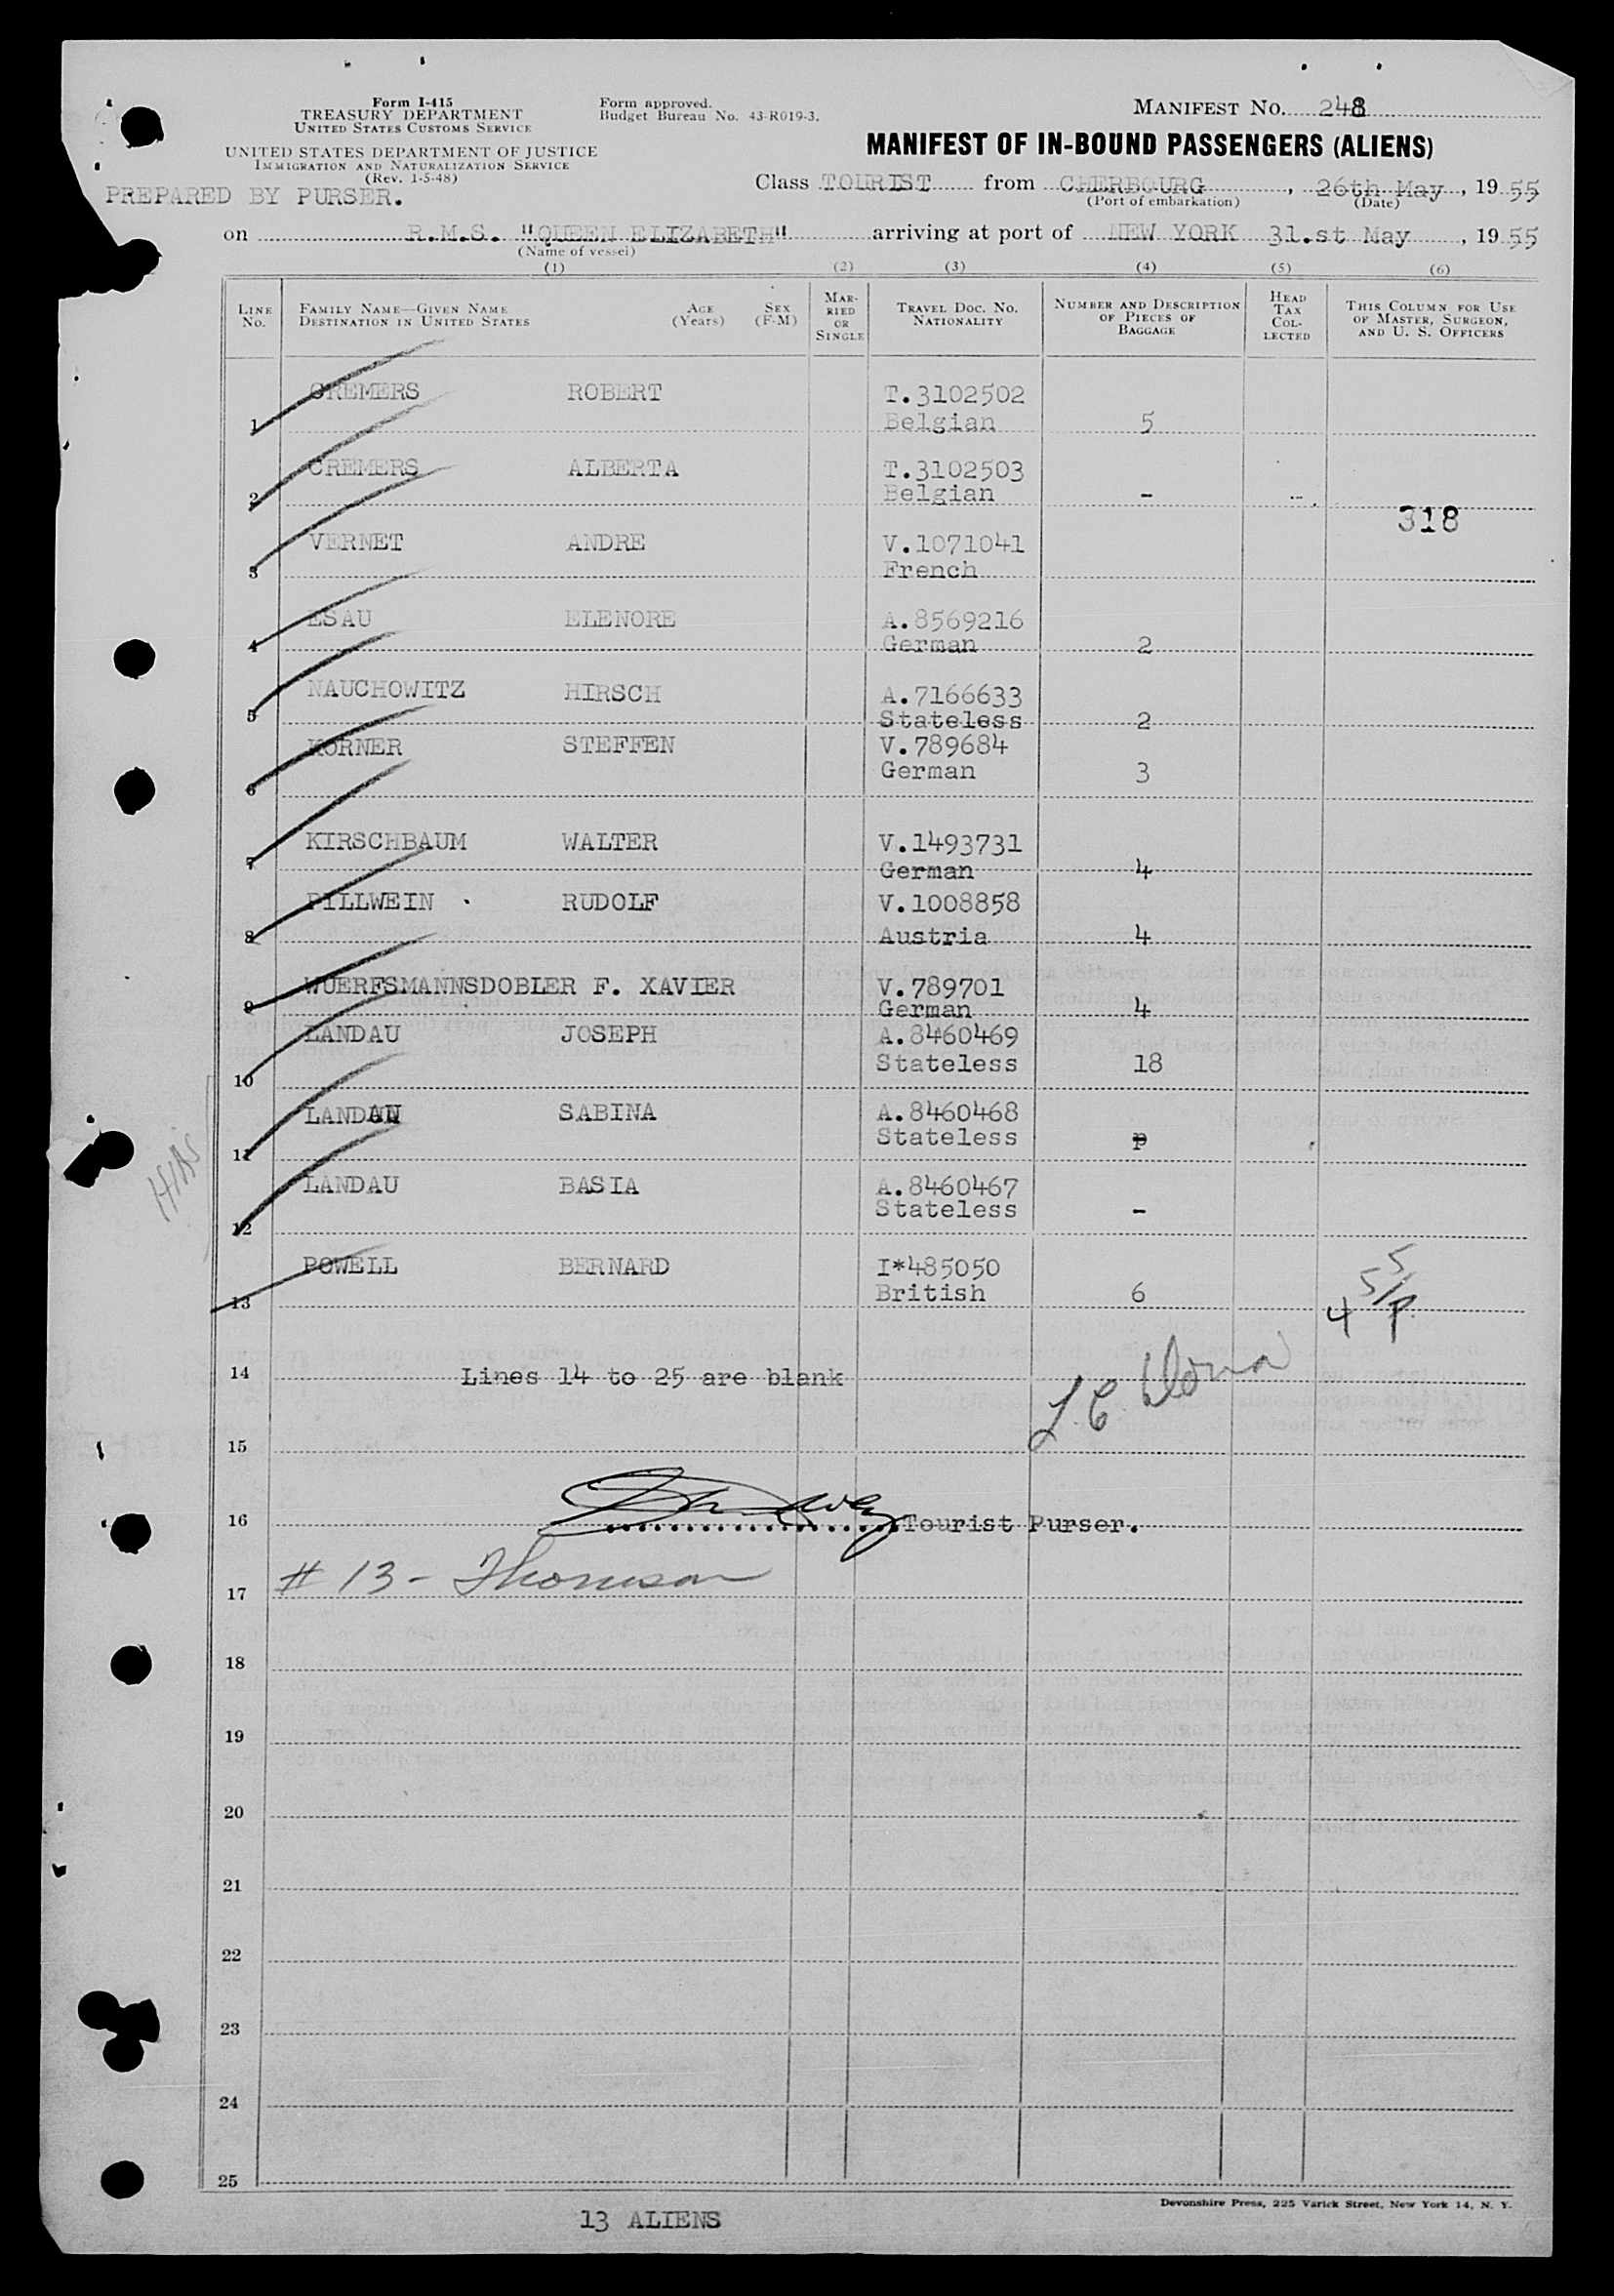 Form I-415
TREASURY DEPARTMENT
UNITED STATES CUSTOMS SERVICE
UNITED STATES DEPARTMENT OF JUSTICE
IMMIGRATION AND NATURALIZATION SERVICE
(Rev. 1-5-48)
PREPARED BY PURSER.
Form approved.
Budget Bureau No. 43-R019-3.
MANIFEST No. 248
MANIFEST OF IN-BOUND PASSENGERS (ALIENS)
Class TOURIST from CHERBOURG, 26th May, 19 55
(Port of embarkation) (Date)
on R.M.S. "QUEEN ELIZABETH" arriving at port of NEW YORK 31.st May, 19 55
(Name of vessel)
(1) (2) (3) (4) (5) (6)
LINE No. FAMILY NAME—GIVEN NAME DESTINATION IN UNITED STATES AGE (Years) SEX (F-M) MARRIED OR SINGLE TRAVEL DOC. NO. NATIONALITY NUMBER AND DESCRIPTION OF PIECES OF BAGGAGE HEAD TAX COLLECTED THIS COLUMN FOR USE OF MASTER, SURGEON, AND U. S. OFFICERS
CREMERS ROBERT T.3102502
1 Belgian 5
CREMERS ALBERTA T.3102503
2 Belgian -
318
VERNET ANDRE V.1071041
3 French
ESAU ELENORE A.8569216
4 German 2
NAUCHOWITZ HIRSCH A.7166633
5 Stateless 2
KORNER STEFFEN V.789684
6 German 3
KIRSCHBAUM WALTER V.1493731
7 German 4
PILLWEIN RUDOLF V.1008858
8 Austria 4
WUERFSMANNSDOBLER F. XAVIER V.789701
9 German 4
LANDAU JOSEPH A.8460469
10 Stateless 18
LANDAU SABINA A.8460468
11 Stateless
LANDAU BASIA A.8460467
12 Stateless -
POWELL BERNARD I*485050
13 British 6
14 Lines 14 to 25 are blank
15
16 Tourist Purser.
17 # 13 - Thomson
18
19
20
21
22
23
24
25
Devonshire Press, 225 Varick Street, New York 14, N. Y.
13 ALIENS